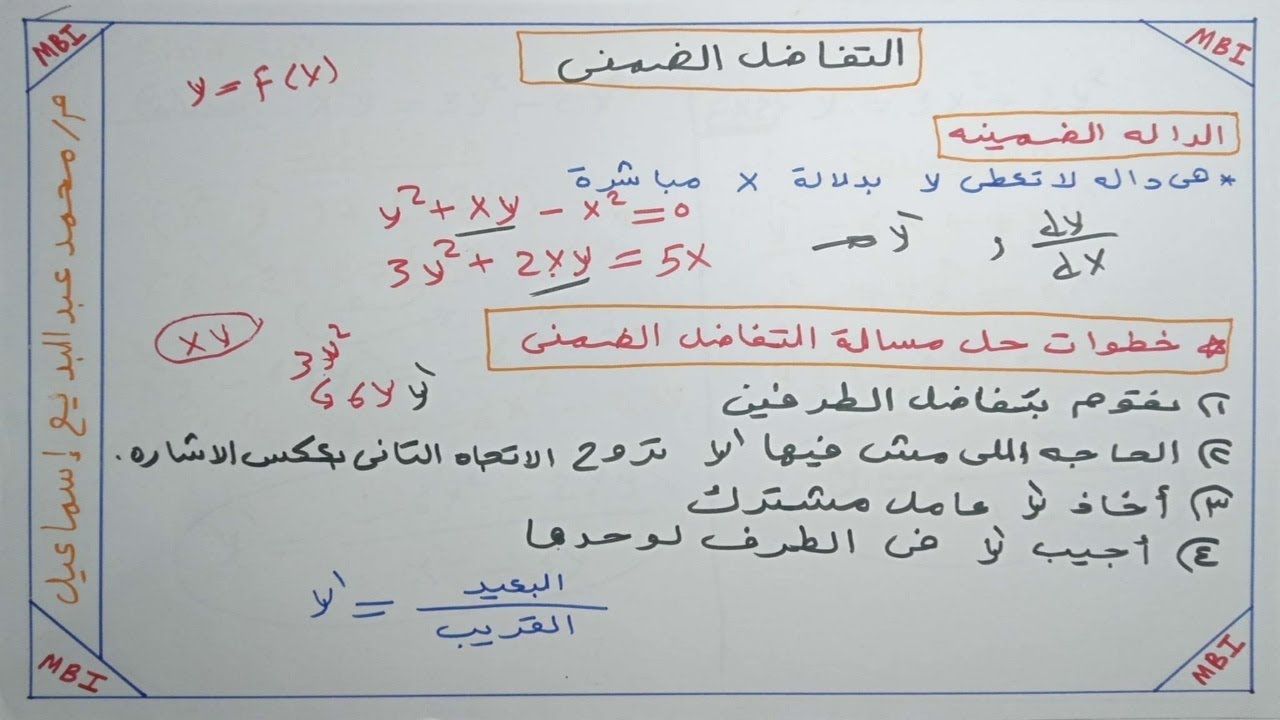 MBI
MBI
م/ محمد عبد البديع إسماعيل
التفاضل الضمنى
y = f(x)
الداله الضمينه
* هى داله لا تعطى y بدلالة x مباشرة
y² + xy - x² = 0
3y² + 2xy = 5x
y' , dy/dx
* خطوات حل مسالة التفاضل الضمنى
xy
3y²
6yy'
١) نقوم بتفاضل الطرفين
٢) الحاجه اللى مش فيها y' تروح الاتجاه التانى بعكس الاشاره.
٣) أخاذ y' عامل مشترك
٤) أجيب y' فى الطرف لوحدها
y' = البعيد / القريب
MBI
MBI